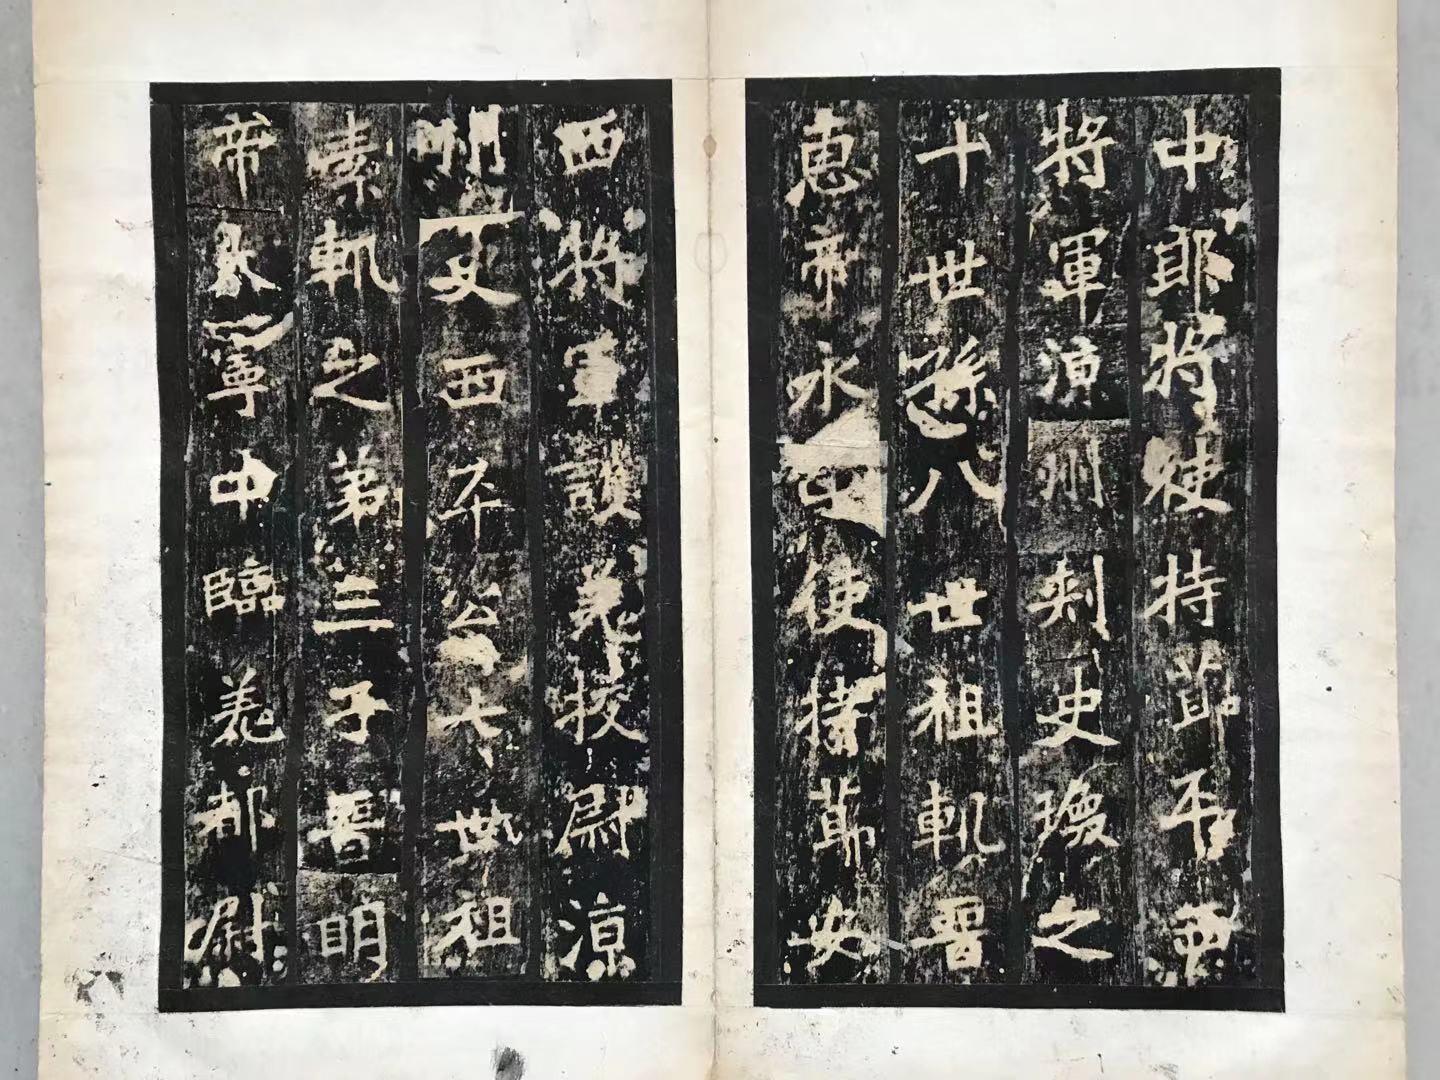 中郎將使持節平西
將軍涼州刺史瑍之
十世孫八世祖軌晉
惠帝永中使持節安
西將軍護羌校尉涼
州史西平公七世祖
素軌之第三子晉明
帝太寧中臨羌都尉